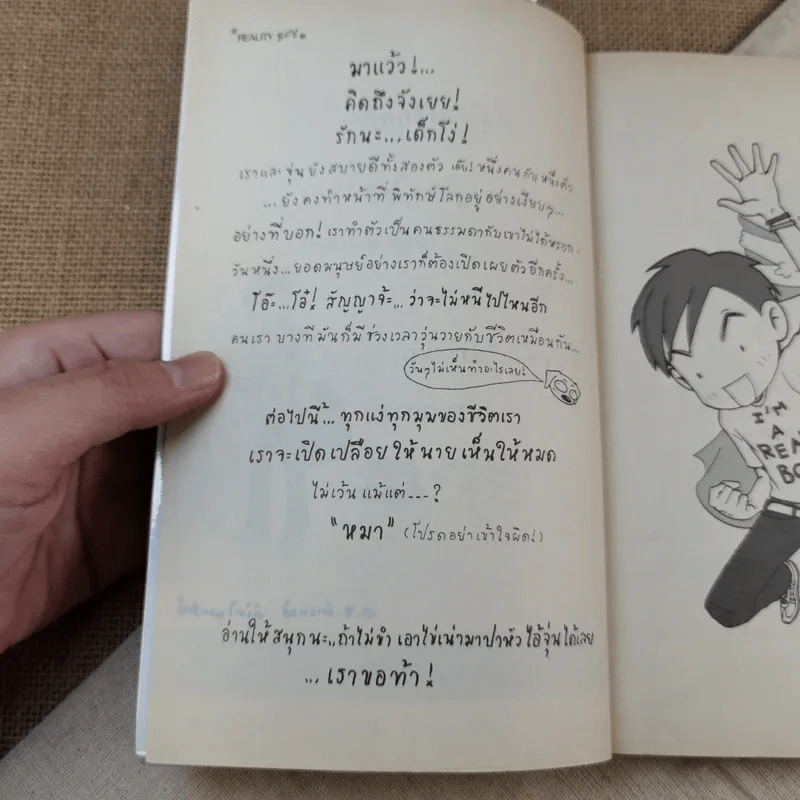 REALITY BOY
มาแว้ว!...
คิดถึงจังเยย!
รักนะ...เด็กโง่!
เราและจุ่น ยังสบายดีทั้งสองตัว เอ๊ย! หนึ่งคนกับหนึ่งตัว
...ยังคงทำหน้าที่ พิทักษ์โลกอยู่อย่างเงียบๆ...
อย่างที่บอก! เราทำตัวเป็นคนธรรมดากับเขาไม่ได้หรอก.
วันหนึ่ง...ยอดมนุษย์อย่างเราก็ต้องเปิดเผยตัวอีกครั้ง...
โอ๊ะ...โอ๋! สัญญาจ้ะ... ว่าจะไม่หนีไปไหนอีก
คนเรา บางทีมันก็มีช่วงเวลาวุ่นวายกับชีวิตเหมือนกัน...
วันๆไม่เห็นทำอะไรเลย!
ต่อไปนี้... ทุกแง่ทุกมุมของชีวิตเรา
เราจะเปิดเปลือย ให้นาย เห็นให้หมด
ไม่เว้น แม้แต่---?
"หมา" (โปรดอย่าเข้าใจผิด!)
อ่านให้สนุกนะ..ถ้าไม่ขำ เอาไข่เน่ามาปาหัวไอ้จุ่นได้เลย
... เราขอท้า!
I'M
A